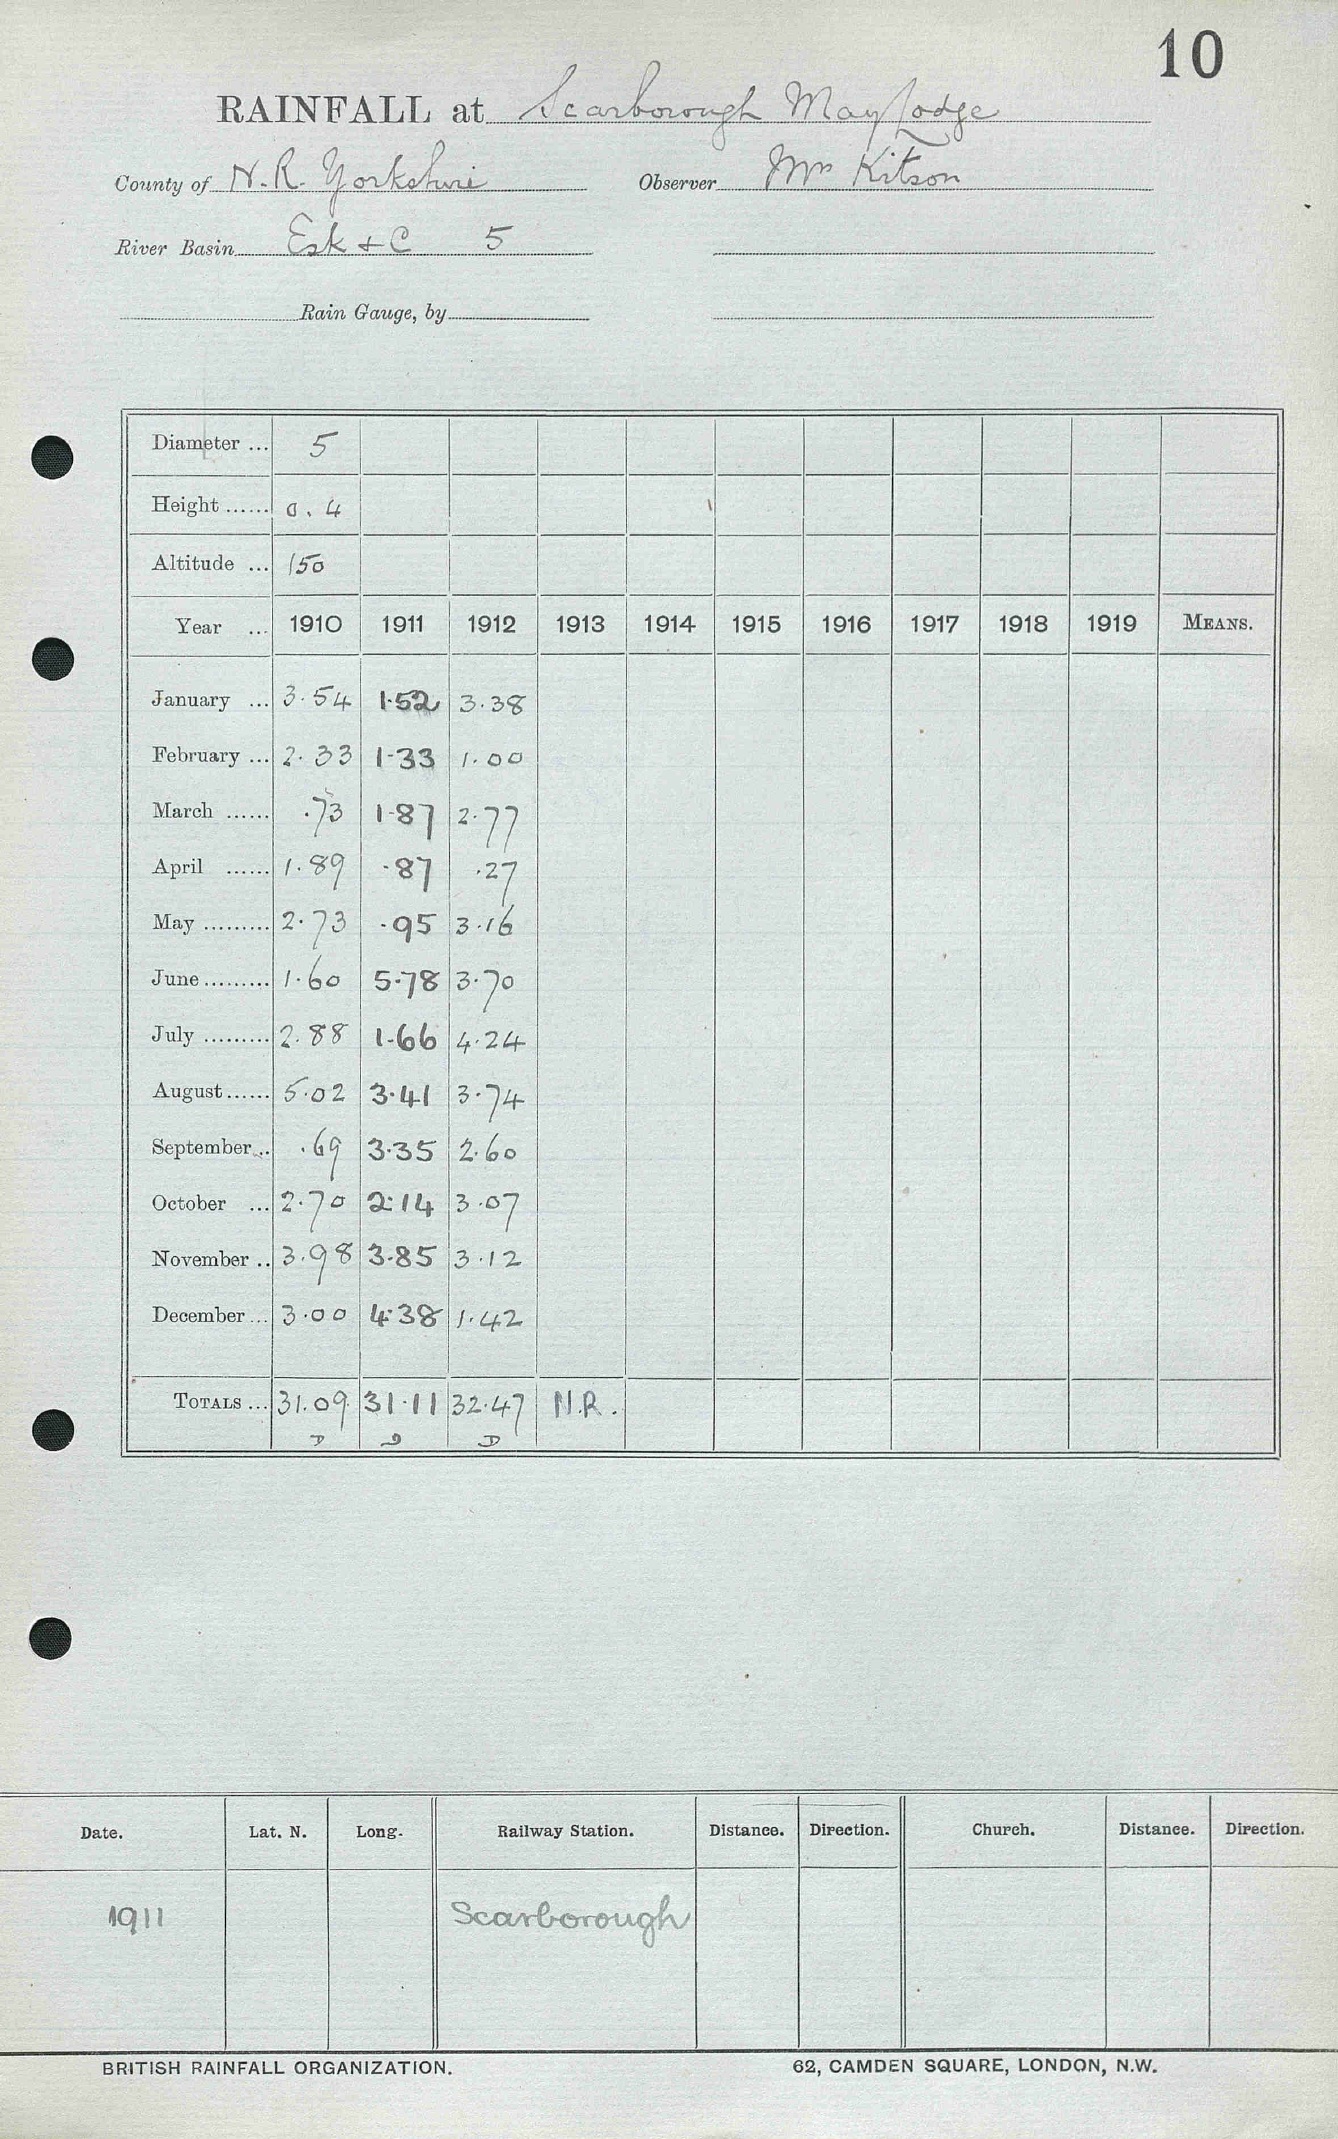 10
RAINFALL at Scarborough May Lodge
County of N. R. Yorkshire Observer Mrs Kitson
River Basin Esk + C 5
Rain Gauge, by
Diameter ... 5
Height ...... 0.4
Altitude ... 150
Year ... 1910 1911 1912 1913 1914 1915 1916 1917 1918 1919 MEANS.
January ... 3.54 1.52 3.38
February ... 2.33 1.33 1.00
March ...... .73 1.87 2.77
April ...... 1.89 .87 .27
May ......... 2.73 .95 3.16
June ......... 1.60 5.78 3.70
July ......... 2.88 1.66 4.24
August ...... 5.02 3.41 3.74
September .. .69 3.35 2.60
October ... 2.70 2.14 3.07
November .. 3.98 3.85 3.12
December ... 3.00 4.38 1.42
TOTALS ... 31.09 31.11 32.47 N.R.
D D D
Date. Lat. N. Long. Railway Station. Distance. Direction. Church. Distance. Direction.
1911 Scarborough
BRITISH RAINFALL ORGANIZATION. 62, CAMDEN SQUARE, LONDON, N.W.